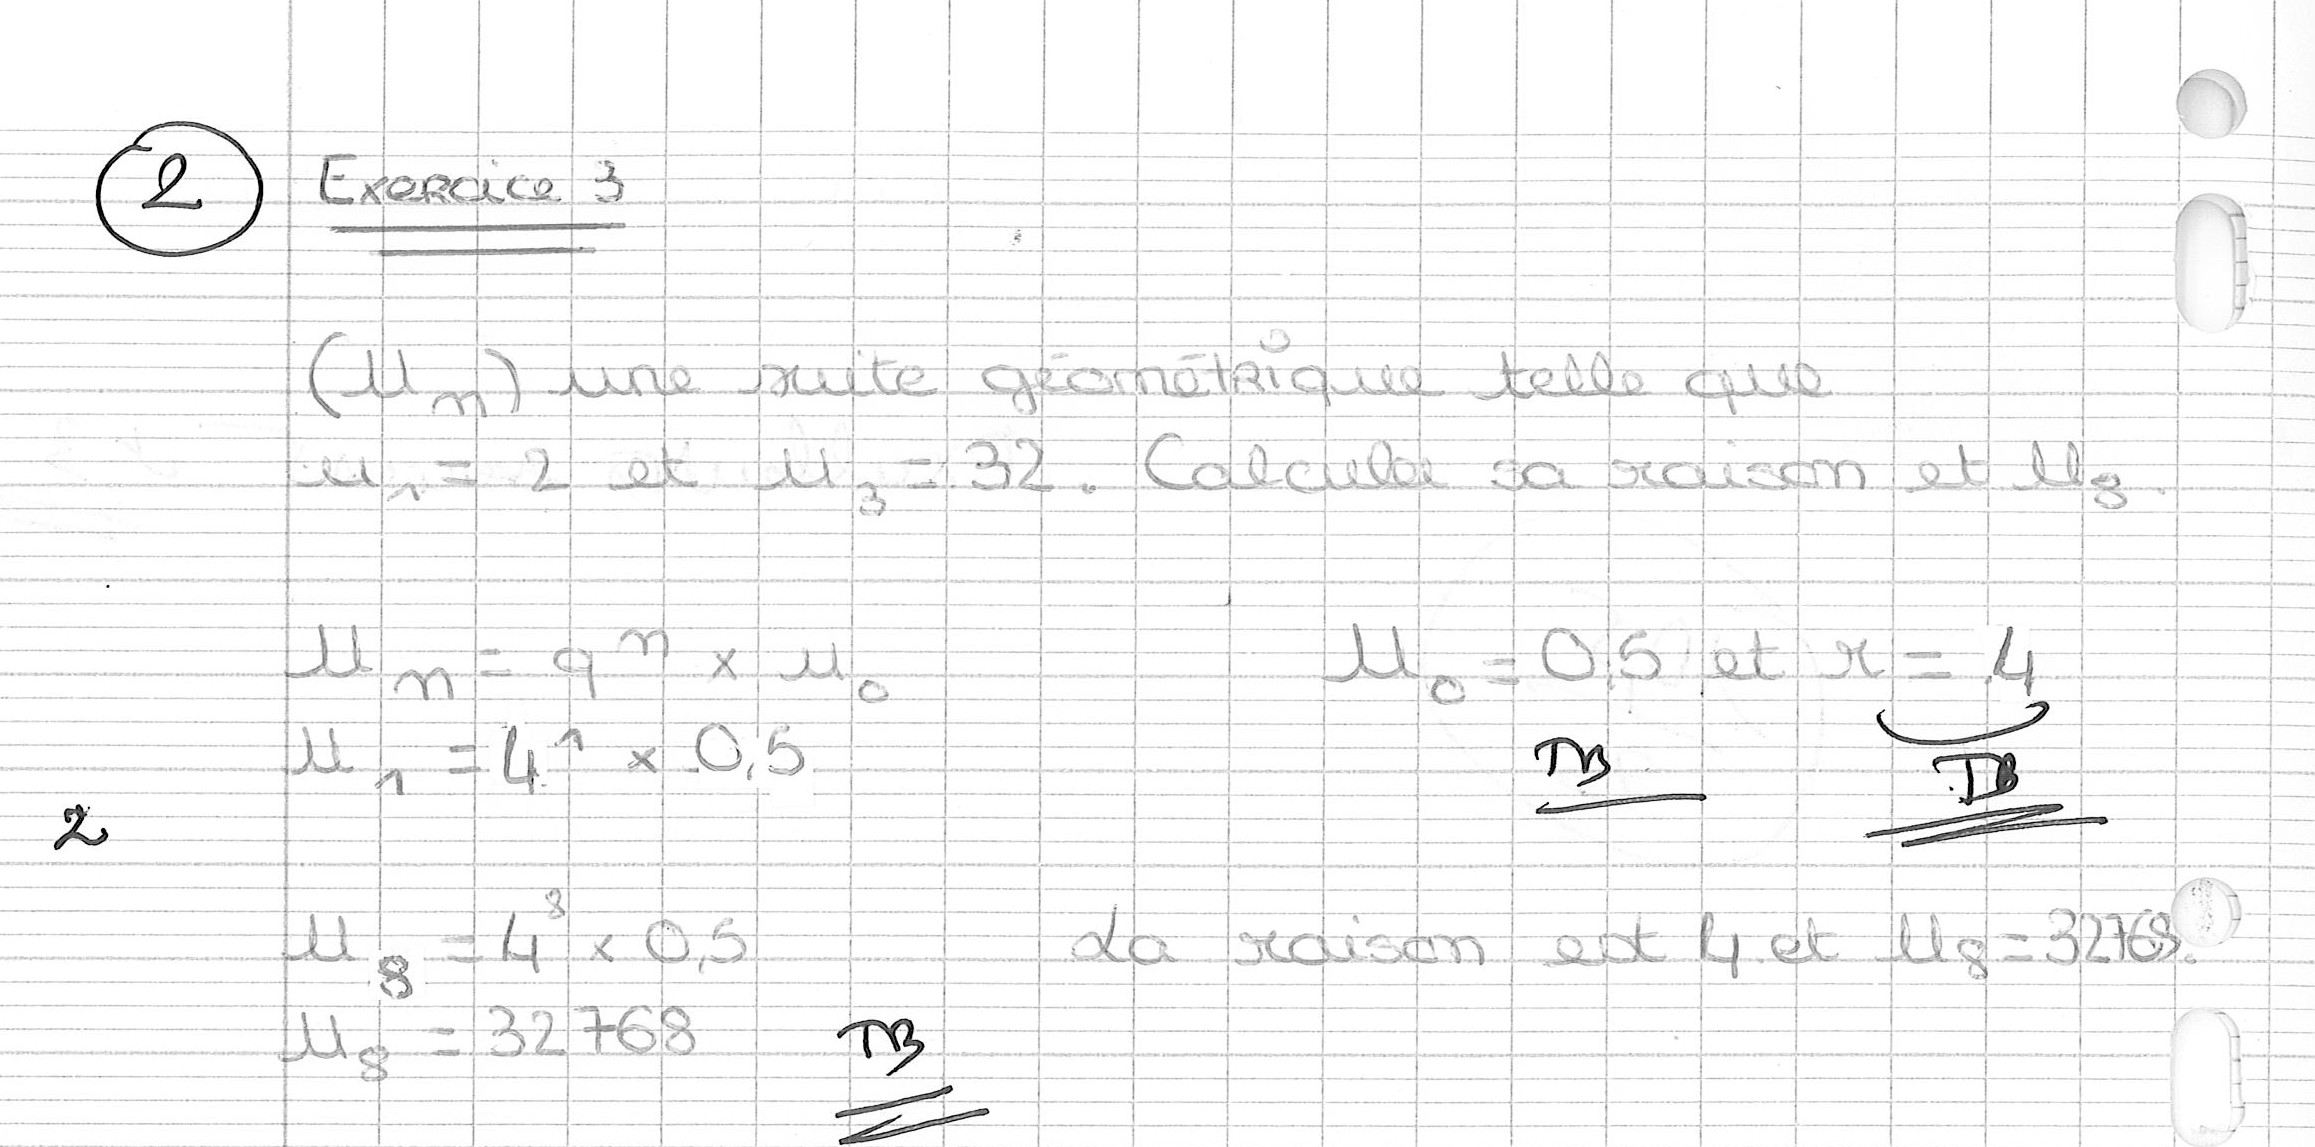 2 Exercice 3
(Un) une suite géométrique telle que
u1 = 2 et u3 = 32. Calculer sa raison et U8.
Un = q^n × u0 U0 = 0,5 et r = 4
U1 = 4^1 × 0,5 TB TB
2
U8 = 4^8 × 0,5 La raison est 4 et U8 = 32768.
U8 = 32768 TB